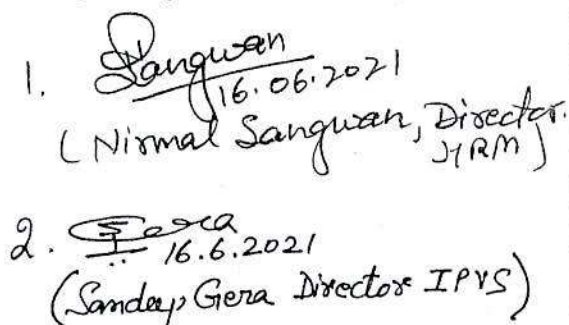 1. Sangwan
16.06.2021
(Nirmal Sangwan, Director.
HRM)
2. Gera
16.6.2021
(Sandeep Gera Director IPVS)